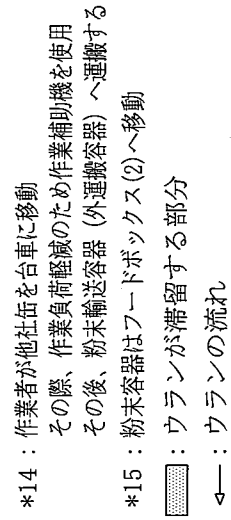 *14：作業者が他社缶を台車に移動
その際、作業負荷軽減のため作業補助機を使用
その後、粉末輸送容器（外運搬容器）へ運搬する
*15：粉末容器はフードボックス(2)へ移動
：ウランが滞留する部分
：ウランの流れ